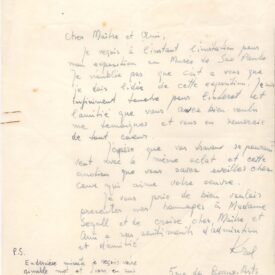 Cher Maître et Ami,
Je reçois à l'instant l'invitation pour
mon exposition au Museo de Sao Paulo
Je n'oublie pas que c'est à vous que
je dois l'idée de cette exposition. Je suis
infiniment pour l'intérêt et
l'amitié que vous avez bien voulu
me témoigner et vous en remercie
de tout coeur.
J'espère que vos travaux se poursuivent
avec le même éclat et cette
émotion que vous savez éveiller chez
ceux qui aiment votre oeuvre.
Je vous prie de bien vouloir
présenter mes hommages à Madame
Segall et de croire cher Maître et
Ami à mes sentiments d'admiration
et d'amitié
P.S.
En dernière minute je reçois votre
aimable mot et
5 rue des Beaux-Arts